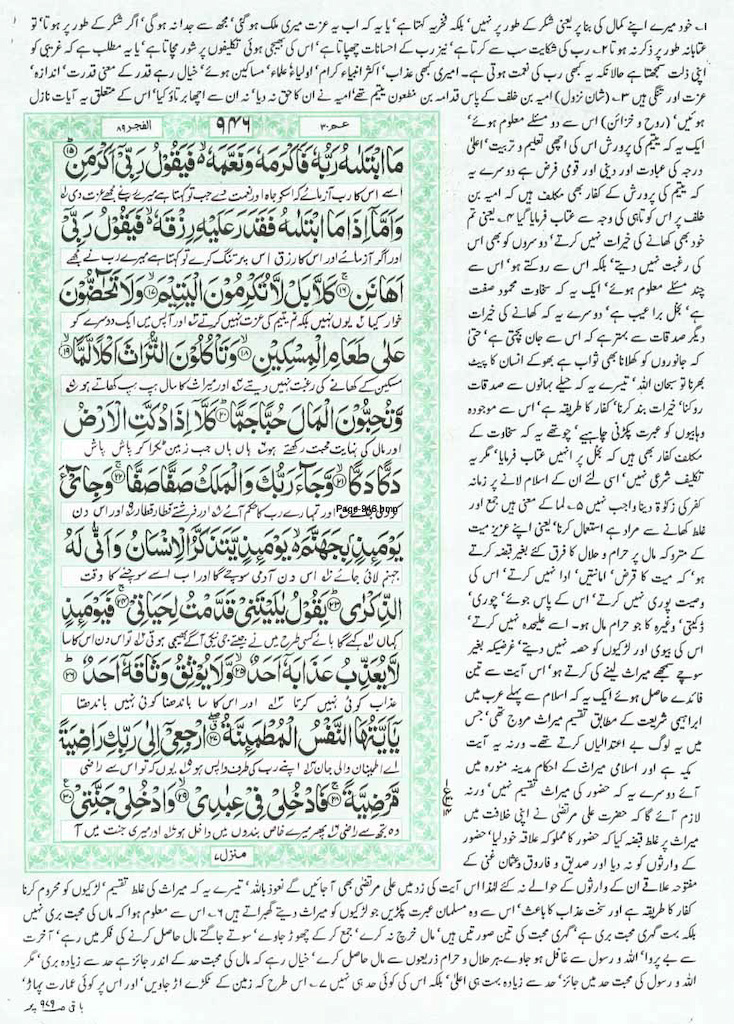 ۱۔ خود میرے اپنے کمال کی بنا پر یعنی شکر کے طور پر نہیں' بلکہ فخریہ کہتا ہے' یا یہ کہ اب یہ عزت میری ملک ہو گئی' مجھ سے جدا نہ ہو گی' اگر شکر کے طور پر ہوتا' تو
عتابانہ طور پر ذکر نہ ہوتا ۲۔ رب کی شکایت سب سے کرتا ہے' نیز رب کے احسانات چھپاتا ہے' اس کی بھیجی ہوئی تکلیفوں پر شور مچاتا ہے' یا یہ مطلب ہے کہ غریبی کو
اپنی ذلت سمجھتا ہے حالانکہ یہ کبھی رب کی نعمت ہوتی ہے۔ امیری کبھی عذاب' اکثر انبیاء کرام' اولیاء' علماء' مساکین ہوئے' خیال رہے قدر کے معنی قدرت' اندازہ'
عزت اور تنگی ہیں ۳۔ (شان نزول) امیہ بن خلف کے پاس قدامہ بن مظعون یتیم تھے' امیہ نے ان کا حق نہ دیا' نہ ان سے اچھا برتاؤ کیا' اس کے متعلق یہ آیات نازل
ہوئیں' (روح و خزائن) اس سے دو مسئلے معلوم ہوئے'
ایک یہ کہ یتیم کی پرورش اس کی اچھی تعلیم و تربیت' اعلیٰ
درجہ کی عبادت اور دینی اور قومی فرض ہے دوسرے یہ
کہ یتیم کی پرورش کے کفار بھی مکلف ہیں کہ امیہ بن
خلف پر اس کوتاہی کی وجہ سے عتاب فرمایا گیا ۴۔ یعنی تم
خود بھی کھانے کی خیرات نہیں کرتے' دوسروں کو بھی اس
کی رغبت نہیں دیتے' بلکہ اس سے روکتے ہو' اس سے
چند مسئلے معلوم ہوئے' ایک یہ کہ سخاوت محمود صفت
ہے' بخل برا عیب ہے' دوسرے یہ کہ کھانے کی خیرات
دیگر صدقات سے بہتر ہے کہ اس سے جان بچتی ہے' حتیٰ
کہ جانوروں کو کھلانا بھی ثواب ہے بھوکے انسان کا پیٹ
بھرنا تو سبحان اللہ' تیسرے یہ کہ حیلے بہانوں سے صدقات
روکنا' خیرات بند کرنا' کفار کا طریقہ ہے' اس سے موجودہ
وہابیوں کو عبرت پکڑنی چاہیے' چوتھے یہ کہ سخاوت کے
مکلف کفار بھی ہیں کہ بخل پر انہیں عتاب فرمایا' مگر یہ
تکلیف شرعی نہیں' اسی لئے ان کے اسلام لانے پر زمانہ
کفر کی زکوٰۃ دینا واجب نہیں ۵۔ لما کے معنی ہیں جمع اور
غلط کھانے سے مراد ہے استعمال کرنا' یعنی اپنے عزیز میت
کے متروکہ مال پر حرام و حلال کا فرق کئے بغیر قبضہ کرتے
ہو' کہ میت کا قرض' امانتیں' ادا نہیں کرتے' اس کی
وصیت پوری نہیں کرتے' اس کے پاس جوئے' چوری'
ڈکیتی' وغیرہ کا جو حرام مال ہو۔ اسے علیحدہ نہیں کرتے'
اس کی بیوی اور لڑکیوں کو حصہ نہیں دیتے' غرضیکہ بغیر
سوچے سمجھے میراث لینے کی کرتے ہو' اس آیت سے تین
فائدے حاصل ہوئے ایک یہ کہ اسلام سے پہلے عرب میں
ابراہیمی شریعت کے مطابق تقسیم میراث مروج تھی' جس
میں یہ لوگ بے اعتدالیاں کرتے تھے۔ ورنہ یہ آیت
مکیہ ہے اور اسلامی میراث کے احکام مدینہ منورہ میں
آئے دوسرے یہ کہ حضور کی میراث تقسیم نہیں' ورنہ
لازم آئے گا کہ حضرت علی مرتضیٰ نے اپنی خلافت میں
میراث پر غلط قبضہ کیا کہ حضور کا مملوکہ علاقہ خود لیا' حضور
کے وارثوں کو نہ دیا اور صدیق و فاروق و عثمان غنی کے
مفتوحہ علاقے ان کے وارثوں کے حوالے نہ کئے لہٰذا اس آیت کی زد میں علی مرتضیٰ بھی آ جائیں گے نعوذ باللہ' تیسرے یہ کہ میراث کی غلط تقسیم' لڑکیوں کو محروم کرنا
کفار کا طریقہ ہے اور سخت عذاب کا باعث' اس سے وہ مسلمان عبرت پکڑیں جو لڑکیوں کو میراث دیتے گھبراتے ہیں ۶۔ اس سے معلوم ہوا کہ ماں کی محبت بری نہیں
بلکہ بہت گہری محبت بری ہے' گہری محبت کی تین صورتیں ہیں' مال خرچ نہ کرے' جمع کر کے چھوڑ جاوے' سوتے جاگتے مال حاصل کرنے کی فکر میں رہے' آخرت
سے بے پروا' اللہ و رسول سے غافل ہو جاوے۔ ہر حلال و حرام ذریعوں سے مال حاصل کرے' خیال رہے کہ مال کی محبت حد کے اندر جائز ہے حد سے زیادہ بری' مگر
اللہ و رسول کی محبت حد میں جائز' حد سے زیادہ بہت ہی اعلیٰ' بلکہ اس کی کوئی حد ہی نہیں ۷۔ اس طرح کہ زمین کے ٹکڑے اڑ جاویں' اور اس پر کوئی عمارت پہاڑ'
باقی صـ ۹۷۹ پر
عم ۳۰
۹۴۶
الفجر ۸۹
مَا ابْتَلٰىهُ رَبُّهٗ فَاَكْرَمَهٗ وَنَعَّمَهٗ فَيَقُوْلُ رَبِّيْۤ اَكْرَمَنِ ۝۱۵
اسے اس کا رب آزمائے کہ اس کو جاہ اور نعمت دے جب تو کہتا ہے میرے رب نے مجھے عزت دی
وَاَمَّاۤ اِذَا مَا ابْتَلٰىهُ فَقَدَرَ عَلَيْهِ رِزْقَهٗ فَيَقُوْلُ رَبِّيْۤ
اور اگر آزمائے اور اس کا رزق اس پر تنگ کرے تو کہتا ہے میرے رب نے مجھے
اَهَانَنِ ۝۱۶ كَلَّا بَلْ لَّا تُكْرِمُوْنَ الْيَتِيْمَ ۝۱۷ وَلَا تَحٰٓضُّوْنَ
خوار کیا یوں نہیں بلکہ تم یتیم کی عزت نہیں کرتے اور آپس میں ایک دوسرے کو
عَلٰى طَعَامِ الْمِسْكِيْنِ ۝۱۸ وَتَاْكُلُوْنَ التُّرَاثَ اَكْلًا لَّمًّا ۝۱۹
مسکین کے کھلانے کی رغبت نہیں دیتے اور میراث کا مال ہپ ہپ کھاتے ہو
وَّتُحِبُّوْنَ الْمَالَ حُبًّا جَمًّا ۝۲۰ كَلَّاۤ اِذَا دُكَّتِ الْاَرْضُ
اور مال کی نہایت محبت رکھتے ہو ہاں ہاں جب زمین ٹکرا کر پاش پاش
دَكًّا دَكًّا ۝۲۱ وَّجَآءَ رَبُّكَ وَالْمَلَكُ صَفًّا صَفًّا ۝۲۲ وَجِایْٓءَ
Page-946.bmp
اور تمہارے رب کا حکم آئے اور فرشتے قطار قطار اور اس دن
يَوْمَىِٕذٍۭ بِجَهَنَّمَ يَوْمَىِٕذٍ يَّتَذَكَّرُ الْاِنْسَانُ وَاَنّٰى لَهُ
جہنم لائی جائے اس دن آدمی سوچے گا اور اب اسے سوچنے کا وقت
الذِّكْرٰى ۝۲۳ يَقُوْلُ يٰلَيْتَنِيْ قَدَّمْتُ لِحَيَاتِيْ ۝۲۴ فَيَوْمَىِٕذٍ
کہاں کہے گا ہائے کسی طرح میں نے جیتے جی نیکی آگے بھیجی ہوتی تو اس دن اس کا سا
لَّا يُعَذِّبُ عَذَابَهٗۤ اَحَدٌ ۝۲۵ وَّلَا يُوْثِقُ وَثَاقَهٗۤ اَحَدٌ ۝۲۶
عذاب کوئی نہیں کرتا اور اس کا سا باندھنا کوئی نہیں باندھتا
يٰۤاَيَّتُهَا النَّفْسُ الْمُطْمَىِٕنَّةُ ۝۲۷ ارْجِعِيْۤ اِلٰى رَبِّكِ رَاضِيَةً
اے اطمینان والی جان اپنے رب کی طرف واپس ہو یوں کہ تو اس سے راضی
مَّرْضِيَّةً ۝۲۸ فَادْخُلِيْ فِيْ عِبٰدِيْ ۝۲۹ وَادْخُلِيْ جَنَّتِيْ ۝۳۰
وہ تجھ سے راضی پھر میرے خاص بندوں میں داخل ہو اور میری جنت میں آ
منزل ۷